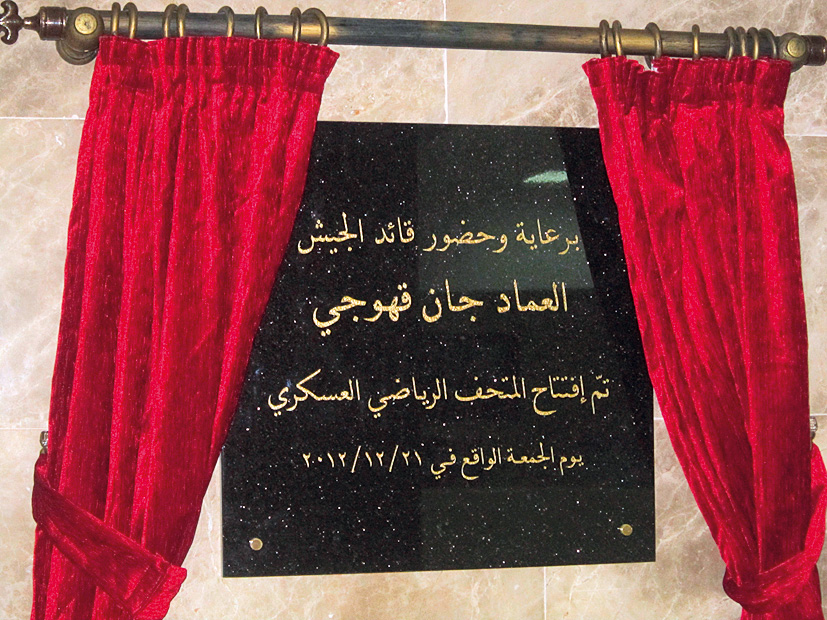 برعاية وحضور قائد الجيش
العماد جان قهوجي
تمّ إفتتاح المتحف الرياضي العسكري
يوم الجمعة الواقع في ٢٠١٢/١٢/٢١